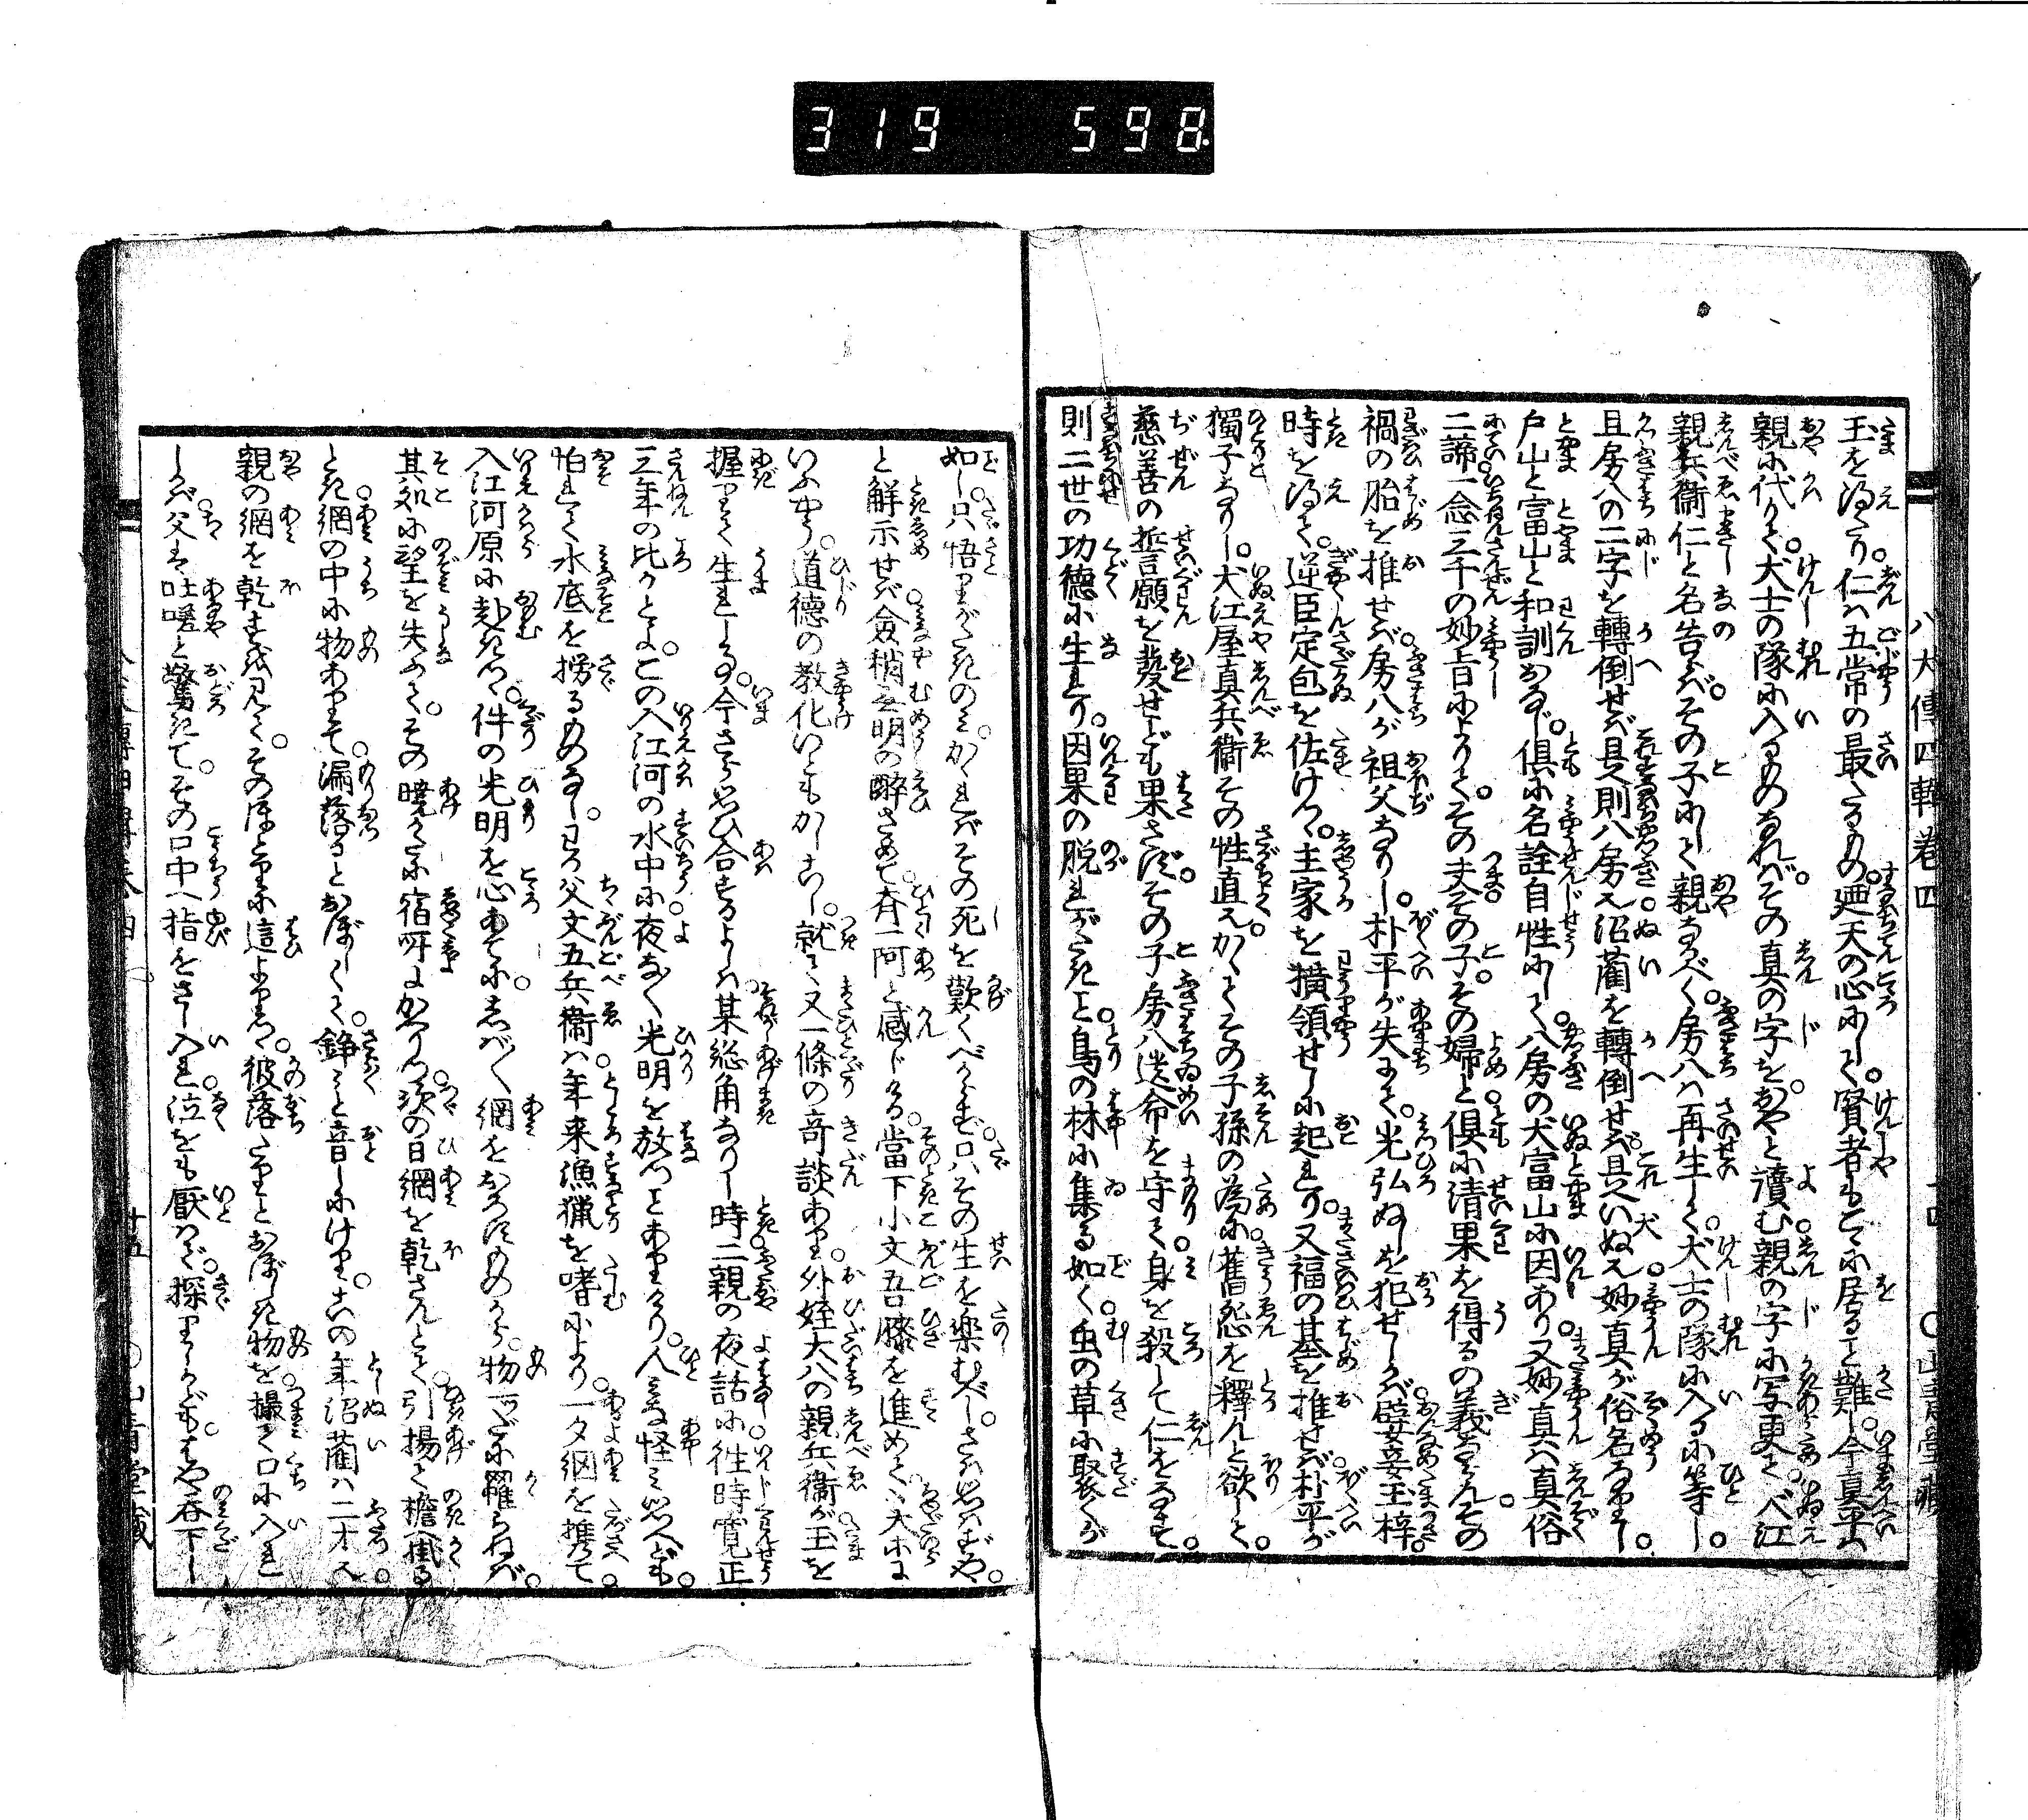 319 598
八犬傳四輯卷四
玉を得たり。仁は五常の最たるもの。廼天の心にして。賢者もこゝに居ること難し。今真平
親に代りて。犬士の隊に入るものなれば。その真の字を。おやと讀む親の字に写更て。江
親兵衞仁と名告らば。その子にして親なるべく。房八は再生して。犬士の隊に入るに等し。
且房八の二字を轉倒せば。是則八房也。沼藺を轉倒せば。是いぬ也。妙真が俗名なりし。
戸山と富山と和訓おなじ。倶に名詮自性にして。八房の犬富山に因あり。又妙真は真俗
二諦一念三千の妙旨によりて。その夫その子。その婦と。倶に清果を得るの義ならん。その
禍の胎を推せば。房八が祖父なりし。朴平が失にて。光弘ぬしを犯せしかば。嬖妾玉梓。
時を得て。逆臣定包を佐けつゝ。主家を横領せしに起れり。又福の基を推せば。朴平が
獨子なりし。犬江屋真兵衞その性直也。かくてその子孫の為に。舊怨を釋んと欲して。
慈善の誓願を發せども果さず。その子房八遺命を守りて。身を殺して仁をなせり。
則二世の功徳に生れたり。因果の脱れがたきこと。鳥の林に集る如く。虫の草に聚くが
十四
○山青堂藏
如し。只悟りがたきのみ。かゝればその死を歎くべからず。只その生を樂むべし。さは思はずや。
と解示せば。僉稍無明の醉さめて。齊一阿と感じける。當下小文吾膝を進めて。丶大に
いふやう。道徳の教化いともかしこし。就て又一條の奇談あり。外姪大八の親兵衞が玉を
握りて生れしを。今さら思ひ合するよしは。某総角なりし時。二親の夜話に。往時寛正
三年の比かとよ。この入江河の水中に。夜な〳〵光明を放つことありけり。人みな怪み思へども。
怕れて水底を撈るものなし。わが父文五兵衞は。年来漁猟を嗜により。一夕網を携て。
入江河原に赴きつゝ。件の光明を心あてに。しば〳〵網をおろすものから。物一ツだに罹らねば。
其処に望を失ふて。その曉かたに宿所にかへりつ。次の日網を乾さんとて。引揚て檐へ掛る
とき。網の中に物ありて。漏落るとおぼしくて。錚々と音しにけり。この年沼藺は二才也。
親の網を乾すを見て。そのほとりに這よりつゝ。彼落たりとおぼしき物を。撮て口に入れ
しかば。父は吐嗟と驚きて。その口中へ指をさし入れ。泣をも厭はず。探りしかども。はや呑下し
八犬傳四輯卷四
廿五
○山青堂藏